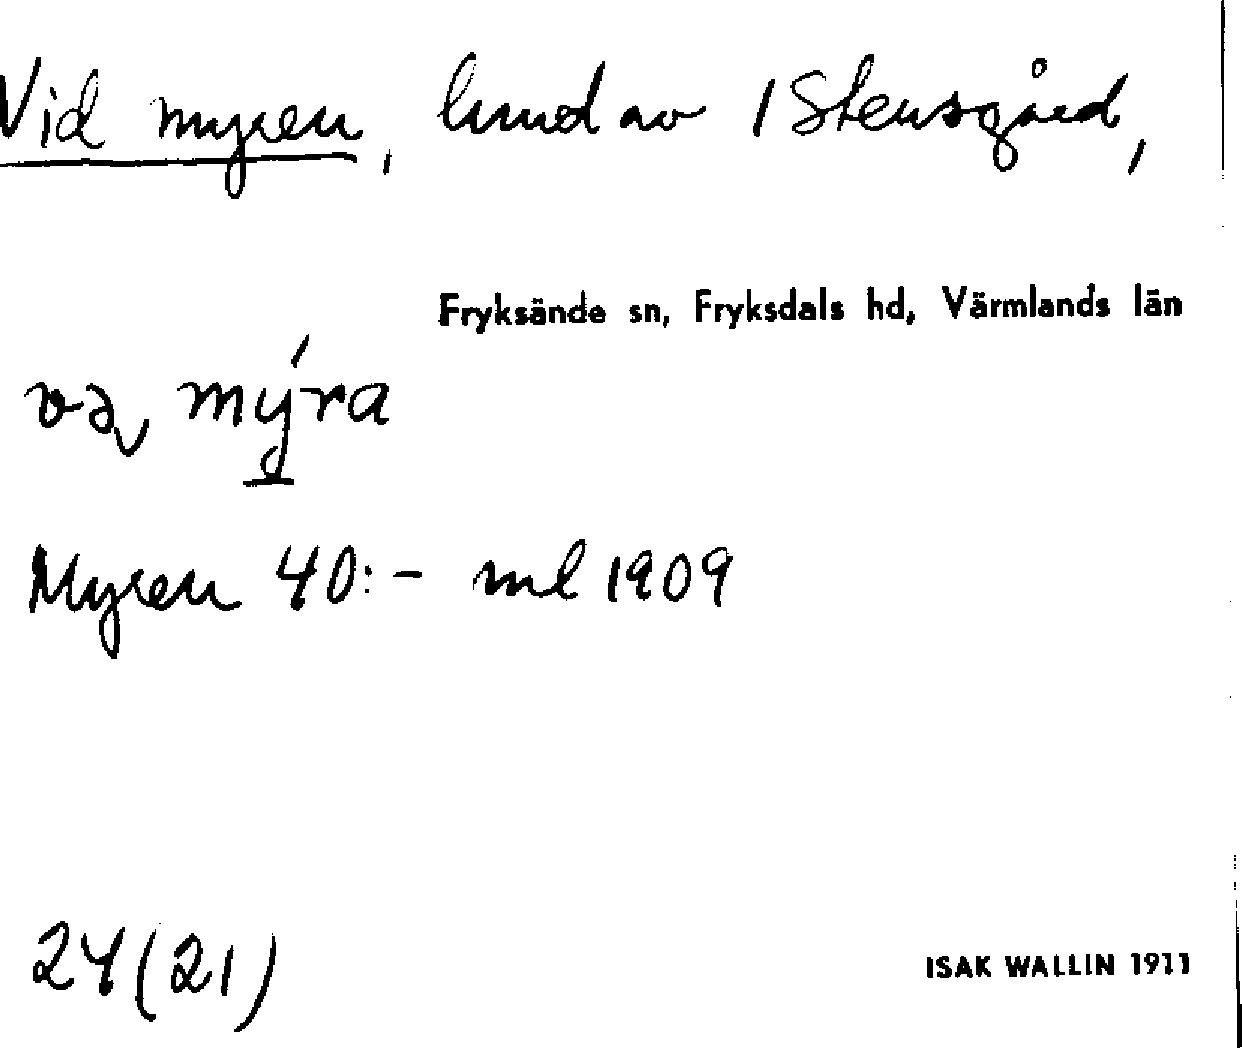 Vid myren, hmd av 1 Stensgård,
Fryksände sn, Fryksdals hd, Värmlands län
və mýra
Myren 40:- ml 1909
24(21)
ISAK WALLIN 1911